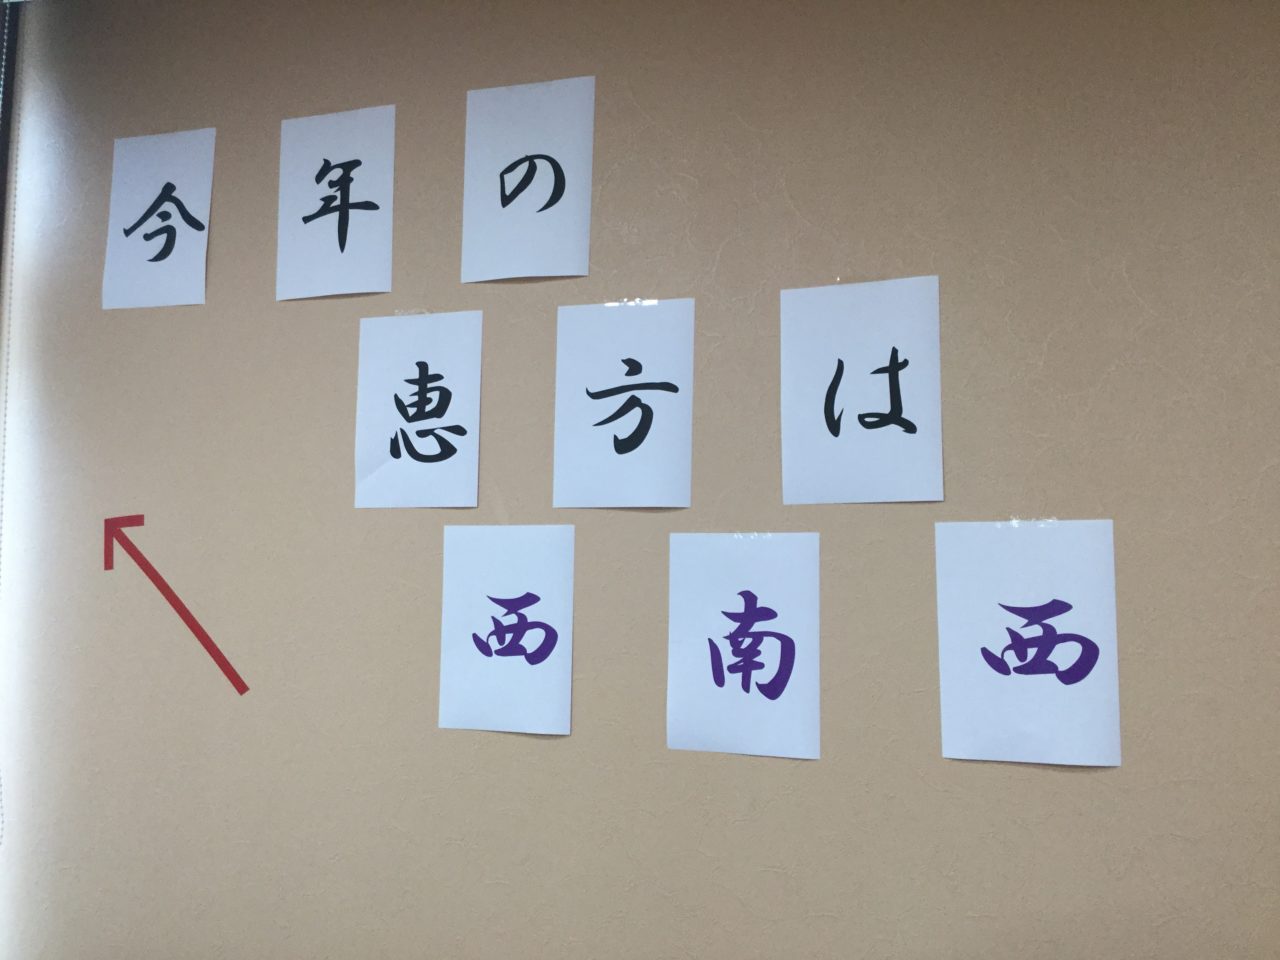 今年の
恵方は
西南西